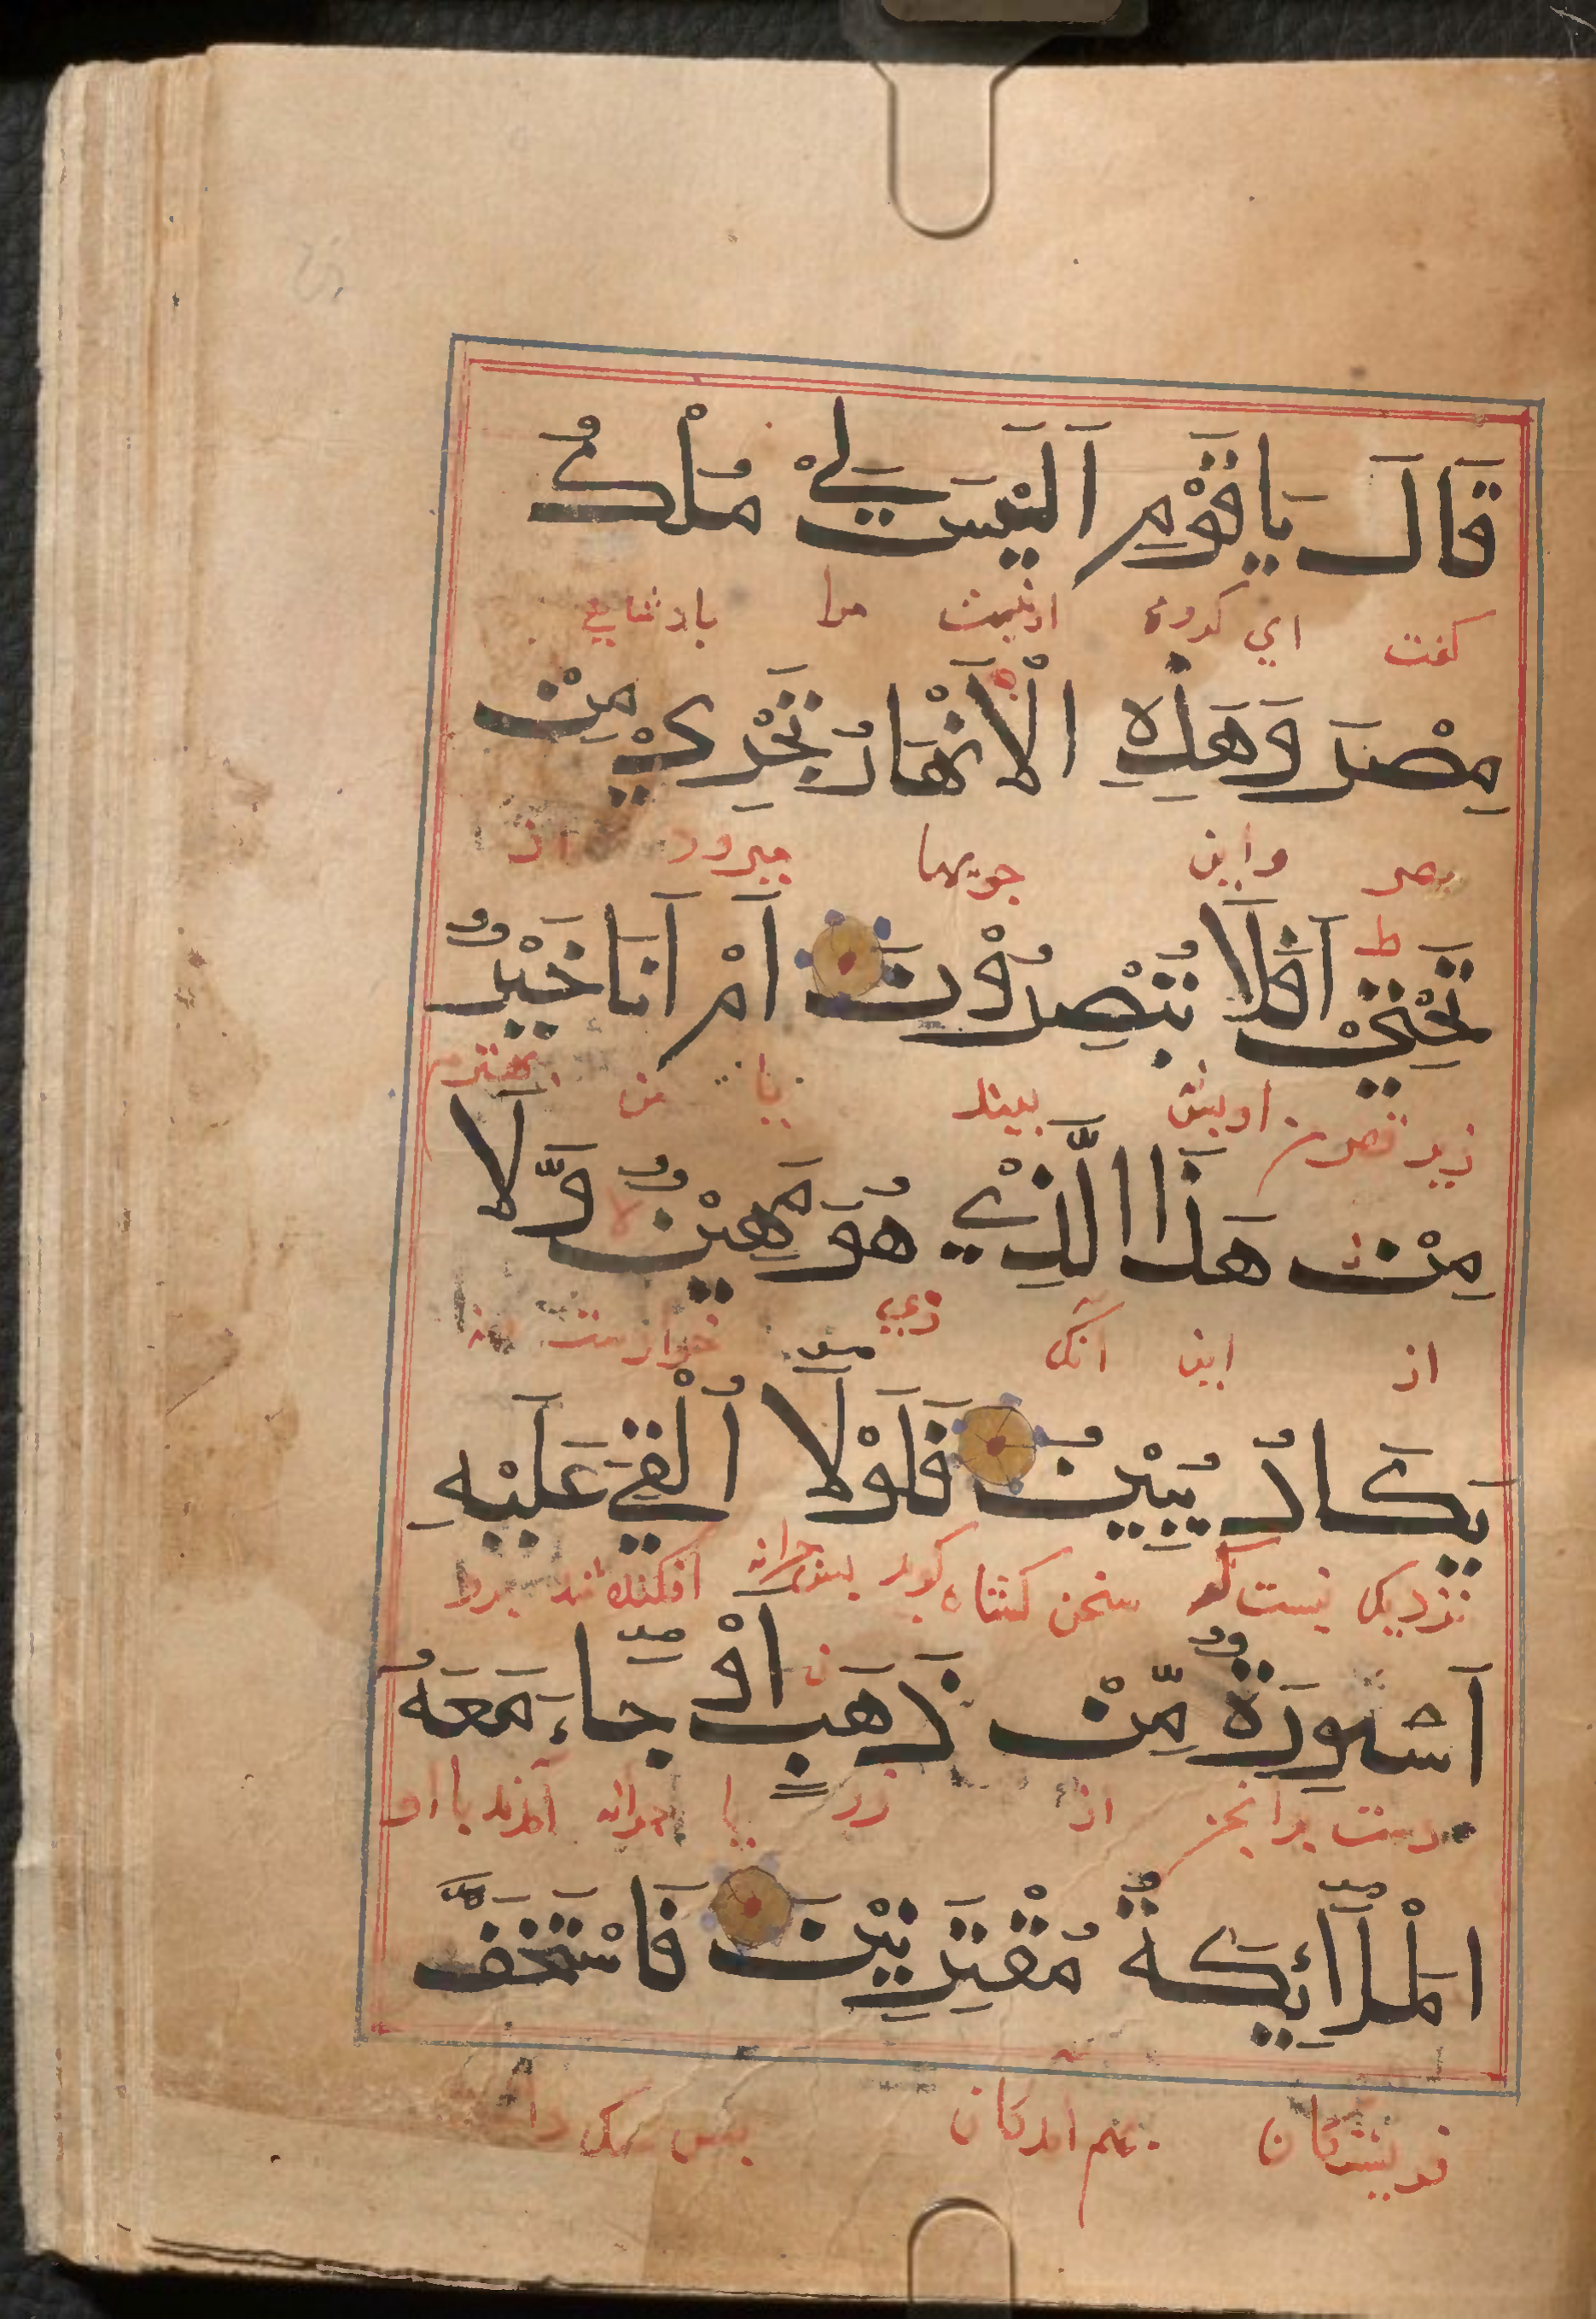 قَالَ يَاقَوْمِ اَلَيْسَ لِيْ مُلْكُ
كفت اي كروه ا نيست مرا بادشايي
مِصْرَ وَهَذِهِ الْاَنْهَارُ تَجْرِيْ مِنْ
مصر واين جويها ميرود از
تَحْتِيْ اَفَلَا تُبْصِرُوْنَ اَمْ اَنَا خَيْرٌ
زير قصر من بينيد يا من بهترم
مِنْ هَذَا الَّذِيْ هُوَ مَهِيْنٌ وَّلَا
از اين آنك وي خوارست ونه
يَكَادُ يُبِيْنُ فَلَوْلَا اُلْقِيَ عَلَيْهِ
نزديك نيست كه سخن كشاده كويد بس جرانه افكنده شد برو
اَسْوِرَةٌ مِّنْ ذَهَبٍ اَوْ جَاءَ مَعَهُ
دست برانجن از زر يا جرانه آمدند با او
الْمَلَائِكَةُ مُقْتَرِنِيْنَ فَاسْتَخَفَّ
فريشتكان بس سبك دا